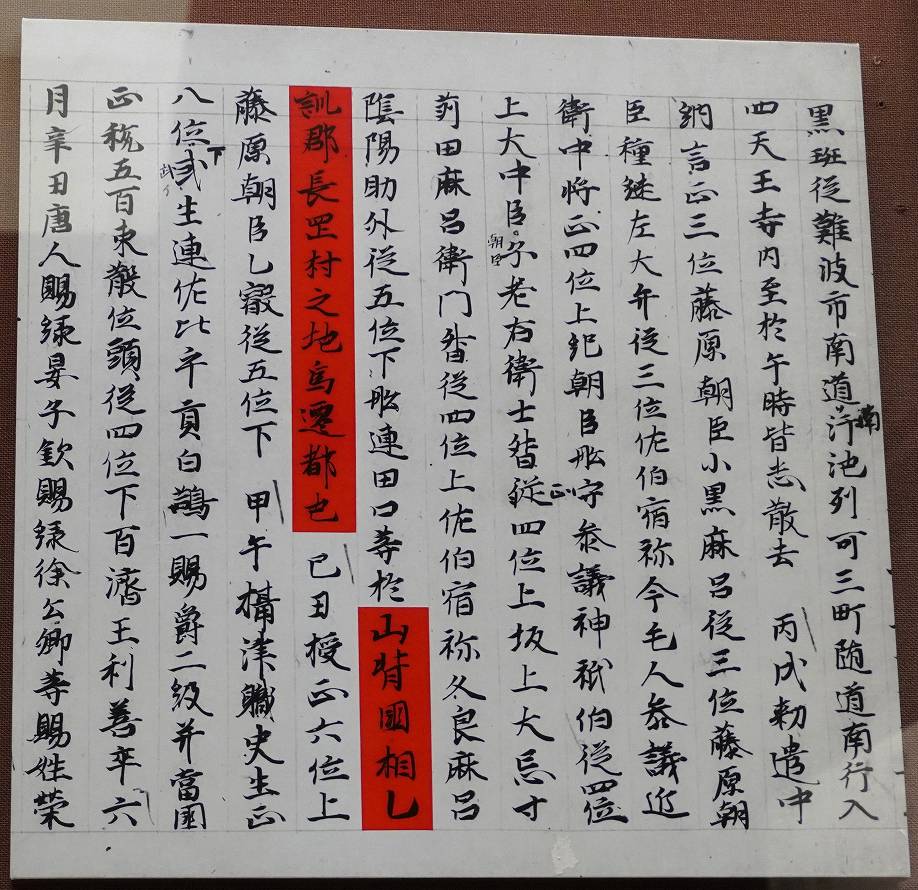 黒班從難波市南道南汙池列可三町随道南行入
四天王寺内至於午時皆悉散去　丙戌勅遣中
納言正三位藤原朝臣小黒麻呂從三位藤原朝
臣種継左大弁從三位佐伯宿祢今毛人参議近
衛中将正四位上紀朝臣船守参議神祇伯從四位
上大中臣朝臣子老右衛士督從正四位上坂上大忌寸
苅田麻呂衛門督從四位上佐伯宿祢久良麻呂
陰陽助外從五位下船連田口等於山背國相乙
訓郡長罡村之地為遷都也　己丑授正六位上
藤原朝臣乙叡從五位下　甲午攝津職史生正
八位下武生連佐比乎貢白鷰一賜爵二級并當國
正税五百束散位頭從四位下百濟王利善卒　六
月辛丑唐人賜緑晏子欽賜緑徐公卿等賜姓榮